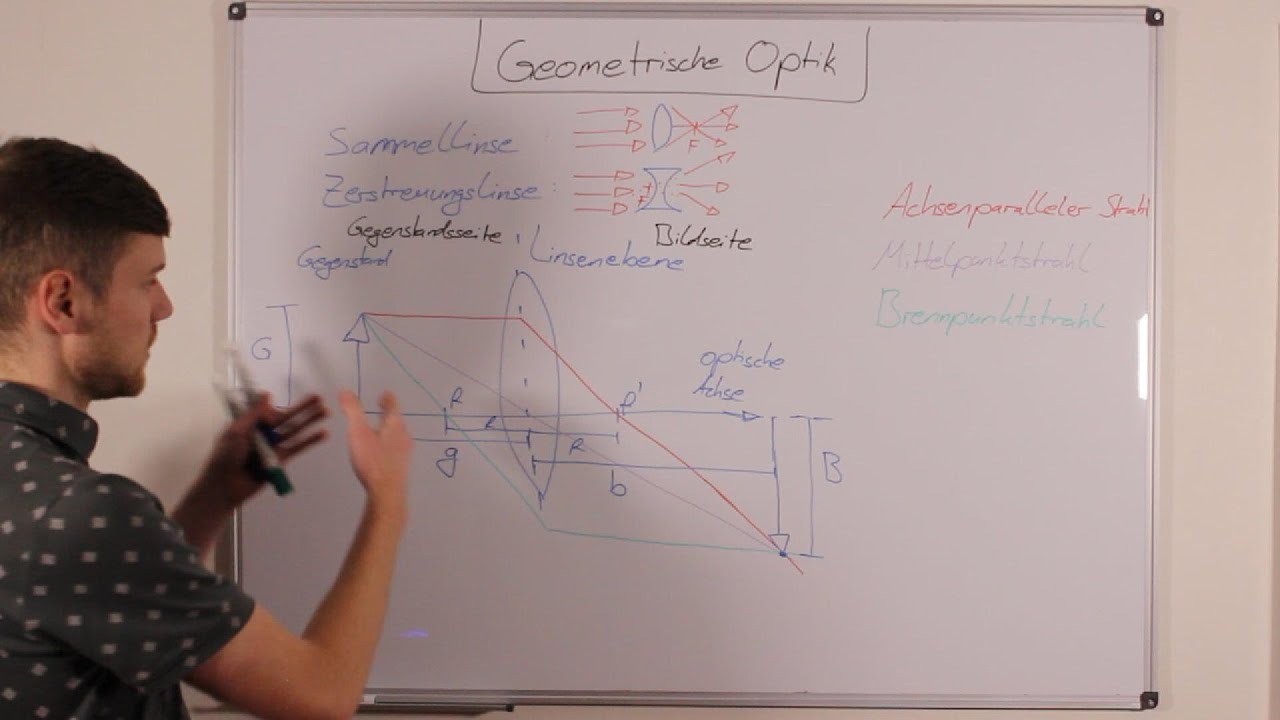 Geometrische Optik
Sammellinse :
F
Zerstreuungslinse :
F
Gegenstandsseite
Bildseite
Gegenstand
Linsenebene
Achsenparalleler Strahl
Mittelpunktstrahl
Brennpunktstrahl
G
optische
Achse
B
g
b